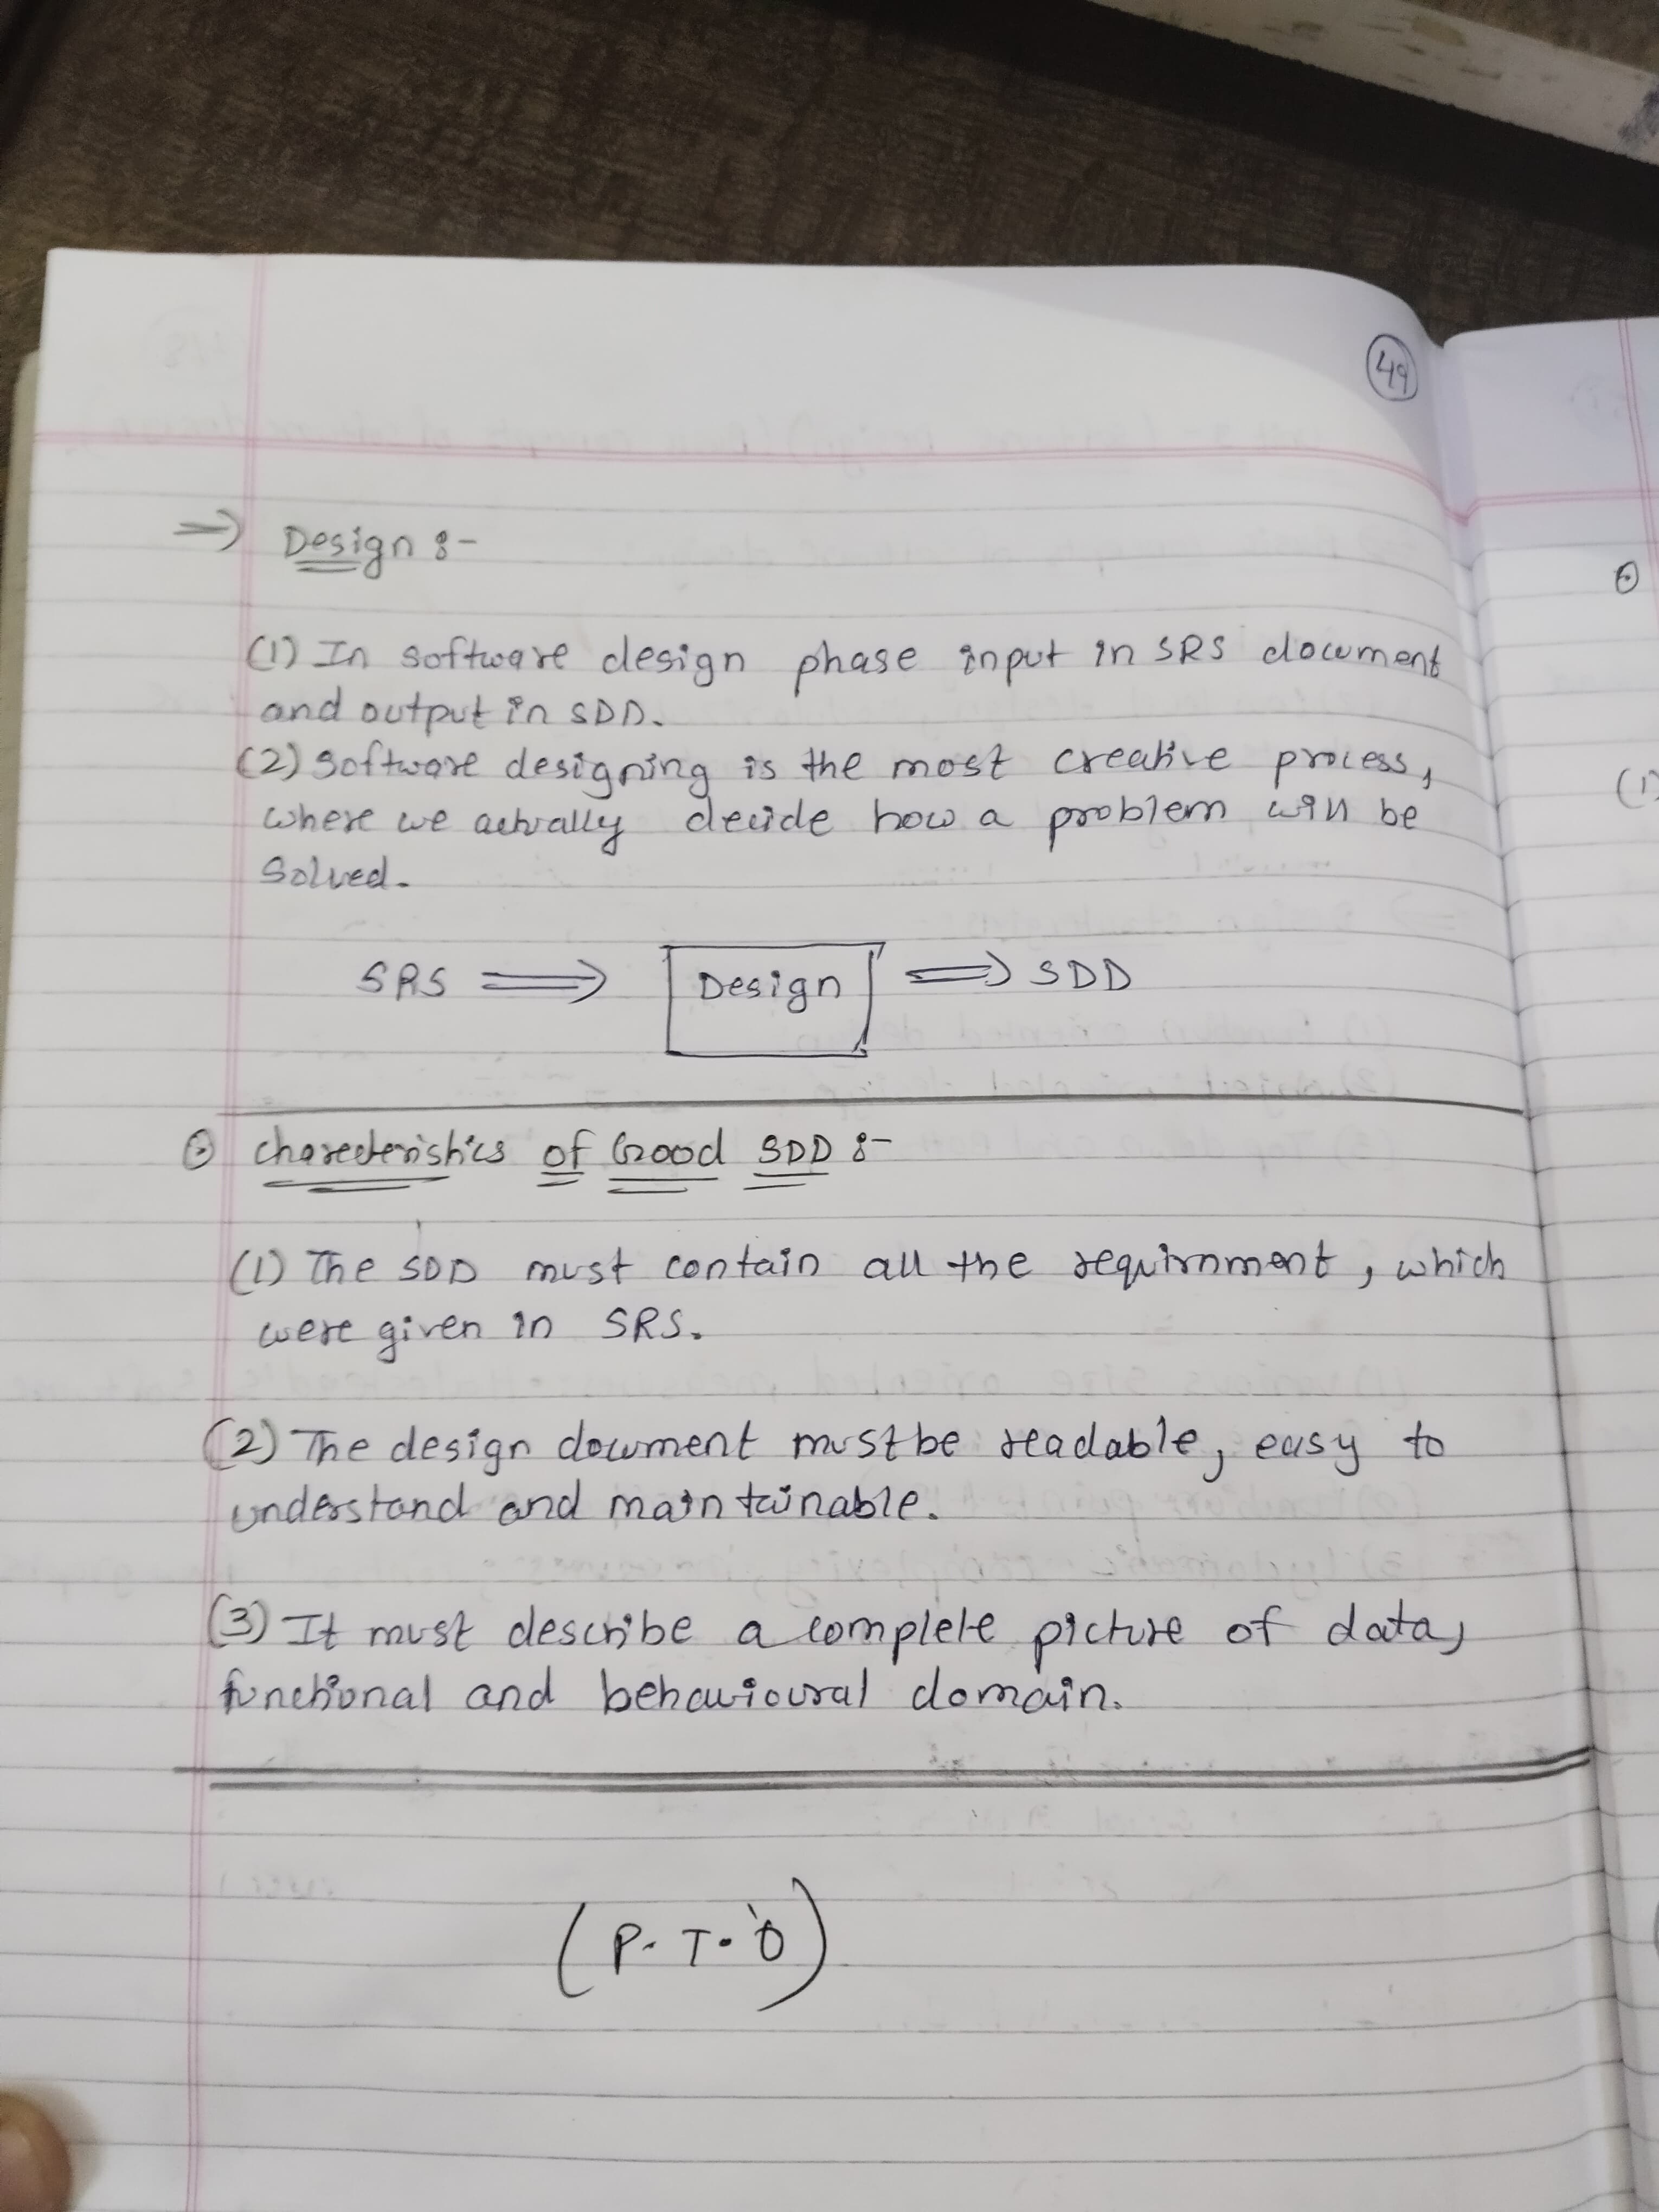 49
⇒ Design :-
(1) In software design phase input in SRS document
and output in SDD.
(2) Software designing is the most creative process,
where we actually decide how a problem will be
Solved.
SRS ⇒ Design ⇒ SDD
⊙ charecteristics of Good SDD :-
(1) The SDD must contain all the requirnment, which
were given in SRS.
(2) The design document must be readable, easy to
understand and maintainable.
(3) It must describe a complete picture of data,
functional and behavioural domain.
(P. T. O)
(1)